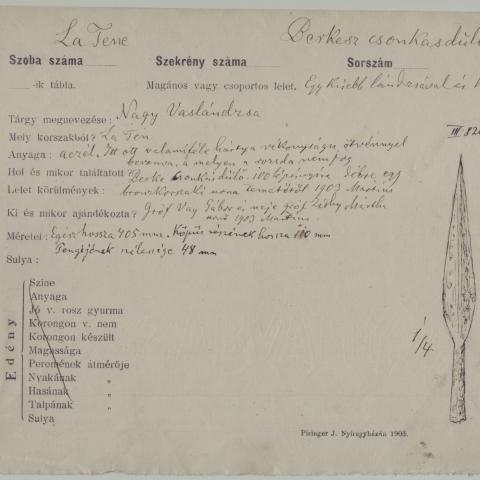 La Tene Berkesz csonkasdűlő
Szoba száma Szekrény száma Sorszám
-ik tábla. Magános vagy csoportos lelet. Egy kisebb lándzsával és
Tárgy megnevezése: Nagy Vaslándzsa
Mely korszakból? La Ten
III. 82
Anyaga: aczél. Itt ott valamiféle hártya vékonyságu, ötvénnyel
bevonva, a melyen a rozsda nem fog
Hol és mikor találtatott? Berke csonkásdűlő. 100 lépésnyire egy
Lelet körülmények: bronzkorszaki urna temetőtől 1903 Martius
Ki és mikor ajándékozta? Gróf Vay Gábor és neje gróf Zichy Mártha
urnő 1903 Martius.
Méretei: Egész hossza 405 mm. Köpüs részének hossza 110 mm
Pengéjének szélessége 48 mm
Sulya:
Edény
Szine
Anyaga
Jó v. rosz gyurma
Korongon v. nem
Korongon készült
Magassága
Peremének átmérője
Nyakának „
Hasának „
Talpának „
Sulya
1/4
Piringer J. Nyiregyházán 1903.